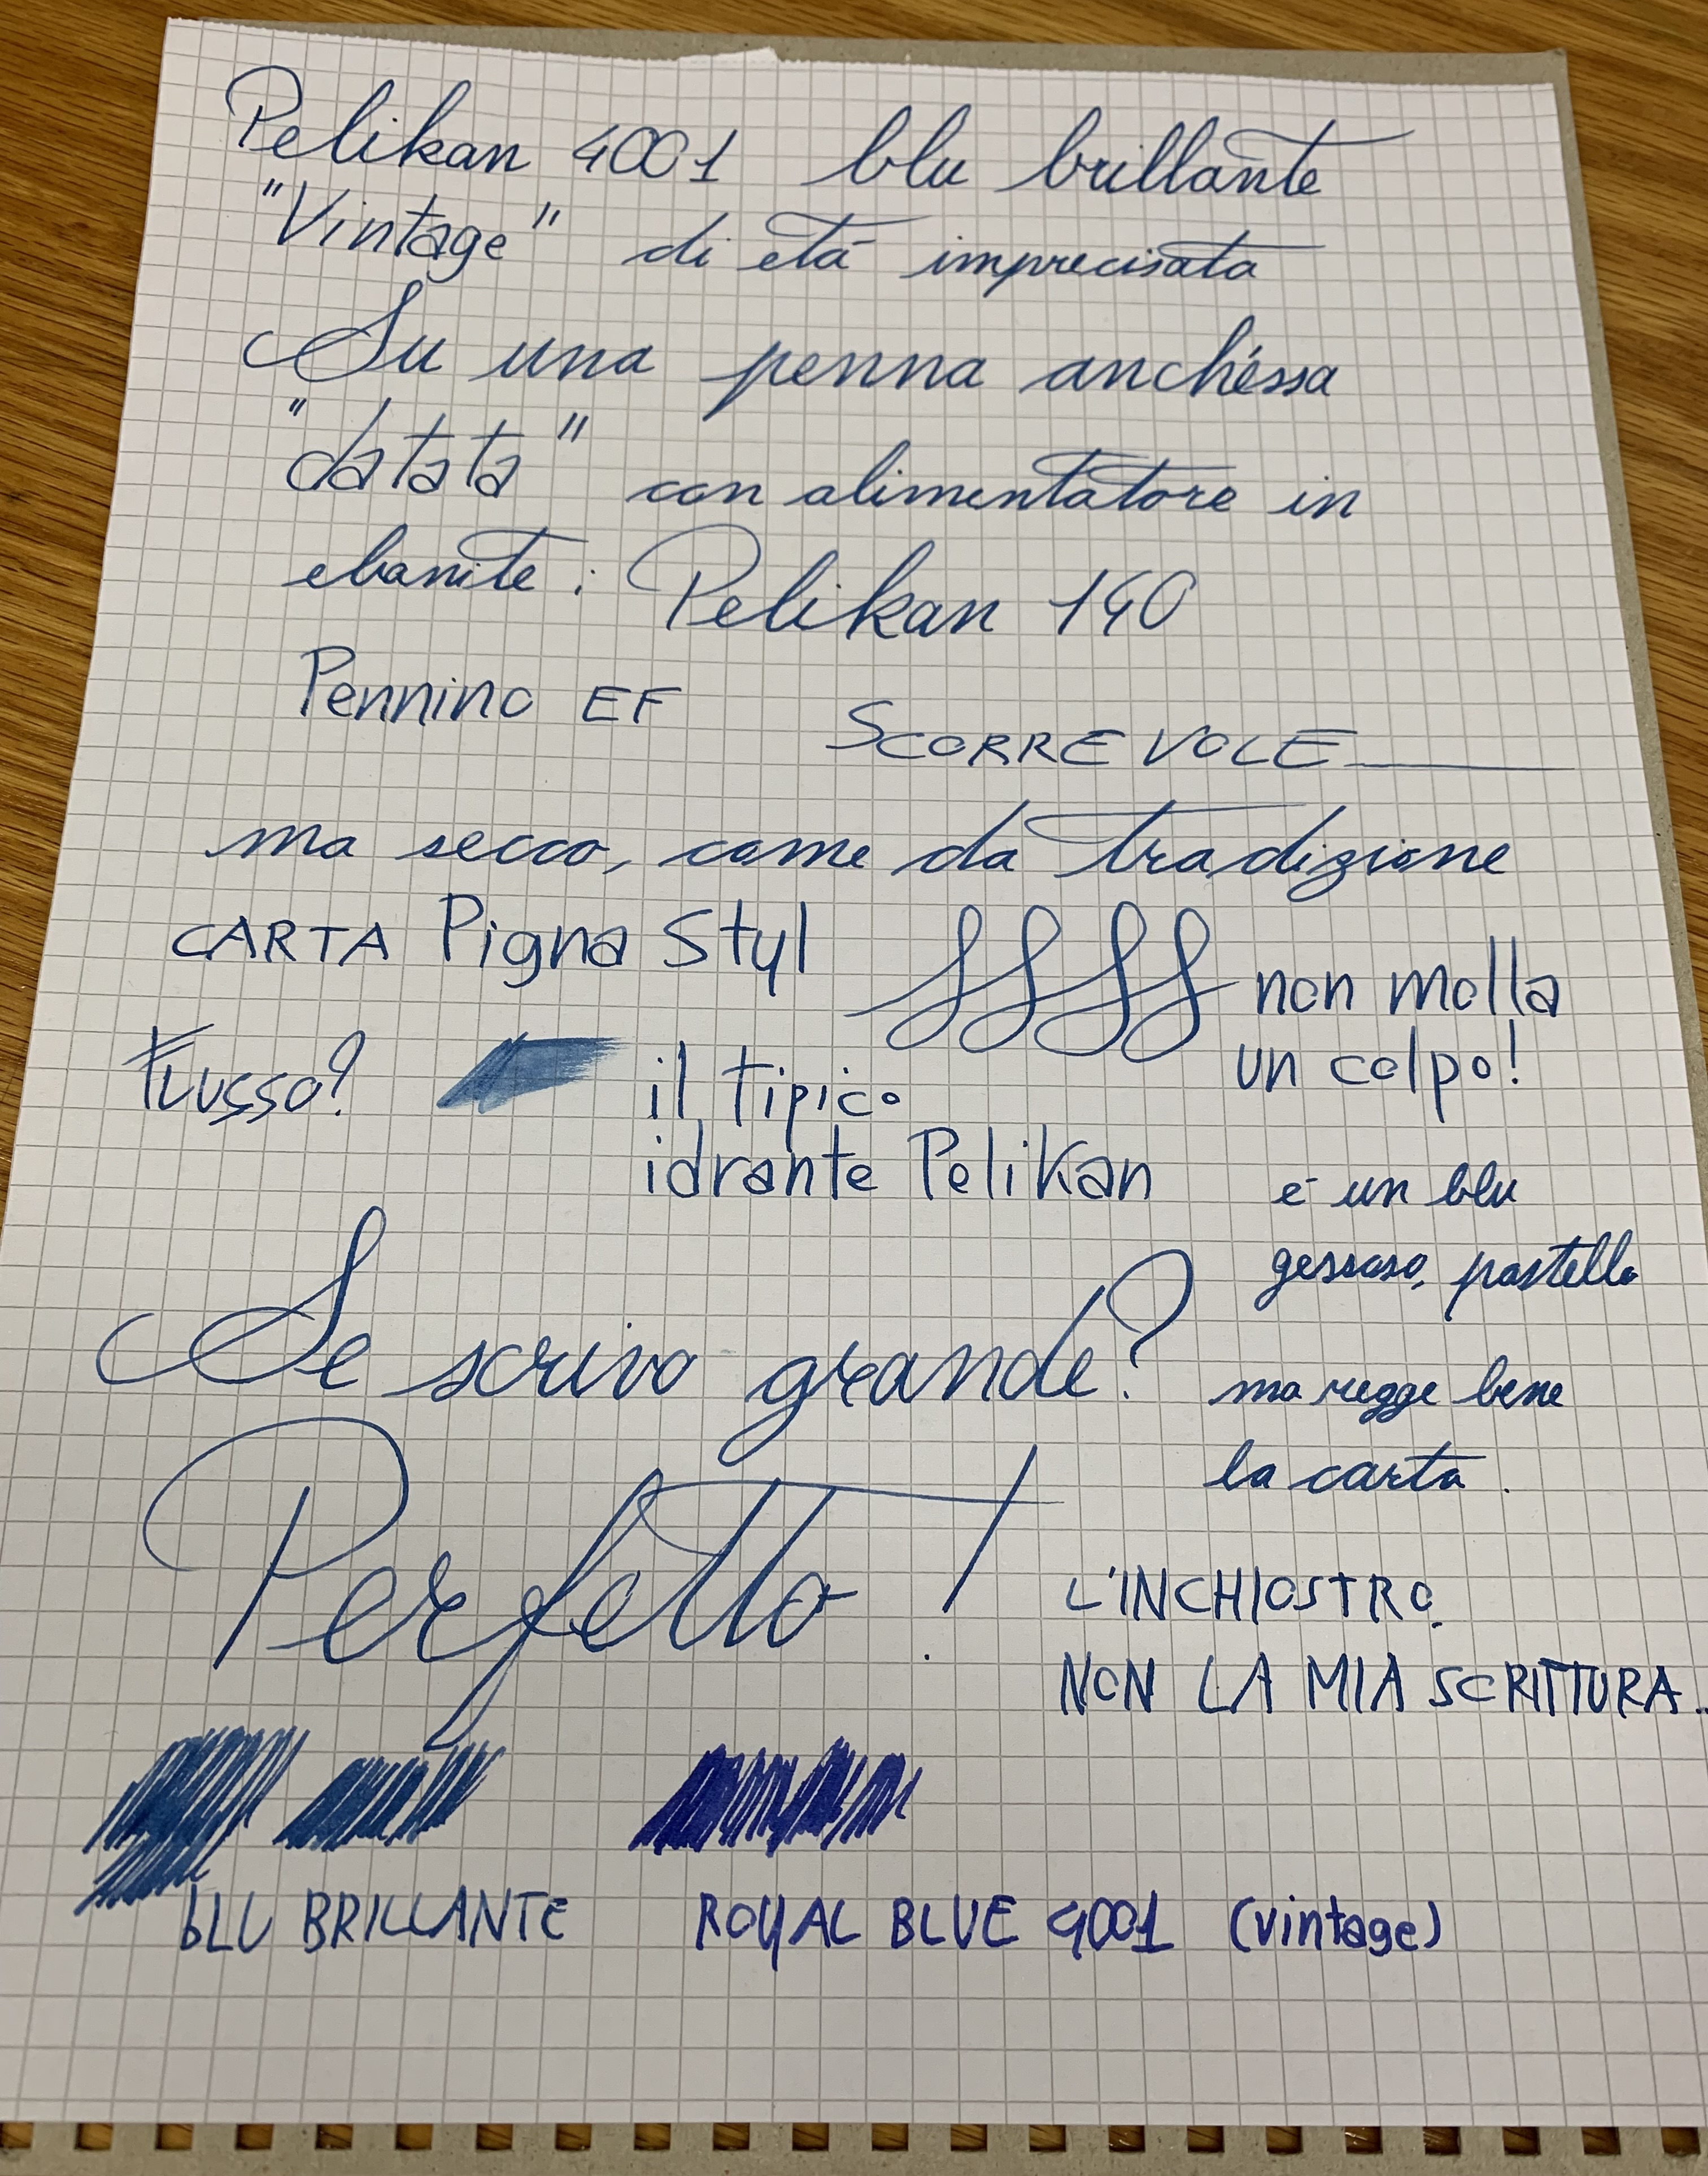 Pelikan 4001 blu brillante
"Vintage" di età imprecisata
Su una penna anch'essa
"datata" con alimentatore in
ebanite: Pelikan 140
Pennino EF SCORREVOLE
ma secco, come da tradizione
CARTA Pigna Styl
non molla
un colpo!
Flusso?
il tipico
idrante Pelikan
è un blu
gessoso, pastello
ma regge bene
la carta.
Se scrivo grande?
Perfetto!
L'INCHIOSTRO,
NON LA MIA SCRITTURA..
bLU BRILLANTE ROYAL BLUE 4001 (vintage)